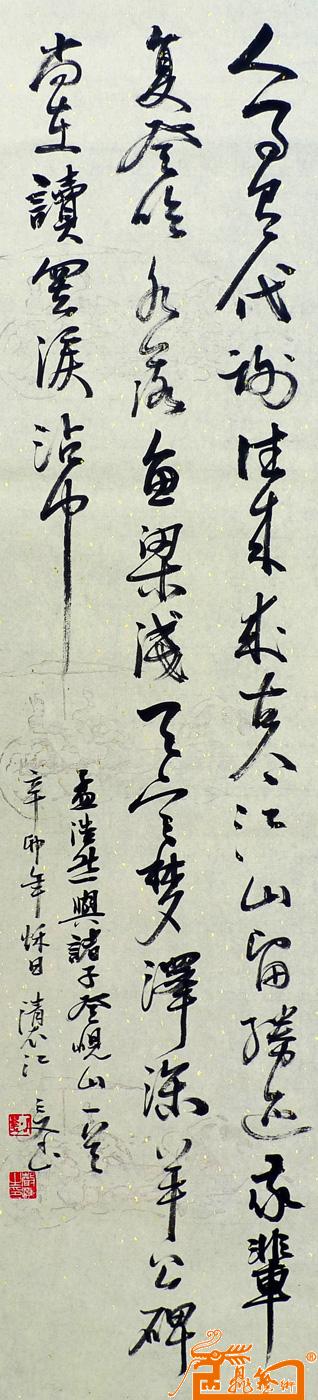 人事有代谢往来成古今江山留勝迹我輩
复登临水落鱼梁浅天寒梦澤深羊公碑
尚在讀罢淚沾巾
孟浩然與諸子登峴山一首
辛卯年秋日清江